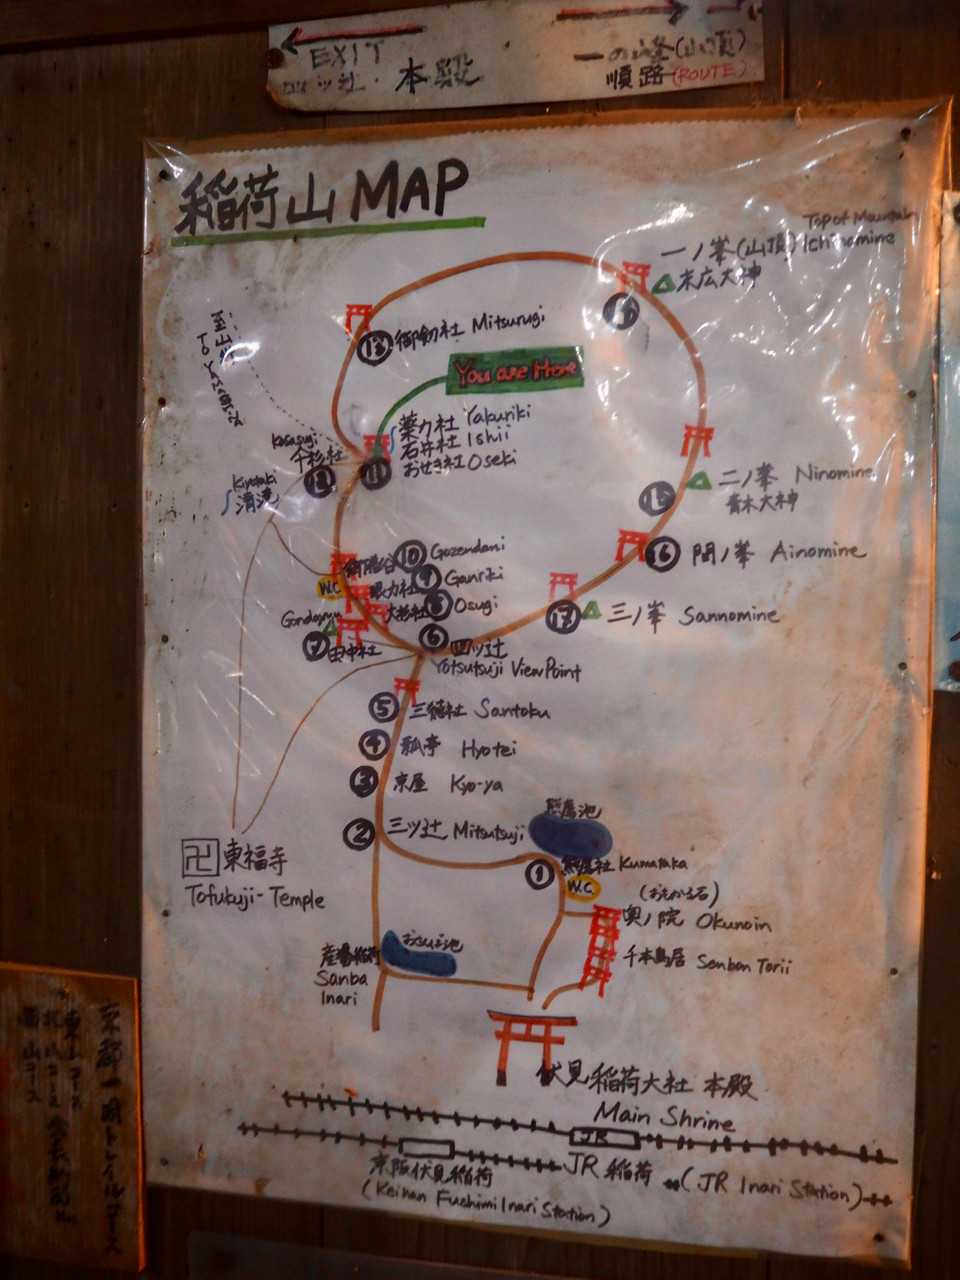 EXIT
四ッ辻
本殿
一の峰(山頂)
順路(ROUTE)
稲荷山 MAP
Top of Mountain
一ノ峯(山頂) Ichinomine
末広大神
⑬ 御劔社 Mitsurugi
You are Here
薬力社 Yakuriki
石井社 Ishii
おせき社 Oseki
⑪
Kasasugi
傘杉社
⑫
Kiyotaki
清滝
⑮
二ノ峯 Ninomine
青木大神
⑯ 間ノ峯 Ainomine
⑰ 三ノ峯 Sannomine
御膳谷 ⑩ Gozendani
W.C
眼力社 ⑨ Ganriki
大杉社 ⑧ Osugi
⑦ 田中社
⑥ 四ツ辻
Yotsutsuji View Point
⑤ 三徳社 Santoku
④ 瓢亭 Hyotei
③ 京屋 Kyo-ya
② 三ツ辻 Mitsutsuji
熊鷹池
① 熊鷹社 Kumataka
W.C.
(おもかる石)
卍 東福寺
Tofukuji-Temple
奥ノ院 Okunoin
千本鳥居 Senbon Torii
産場稲荷
Sanba
Inari
伏見稲荷大社 本殿
Main Shrine
JR
JR 稲荷
(JR Inari Station)
京阪伏見稲荷
(Keihan Fushimi Inari Station)
京都一周トレイルコース
東山コース
北山コース
西山コース